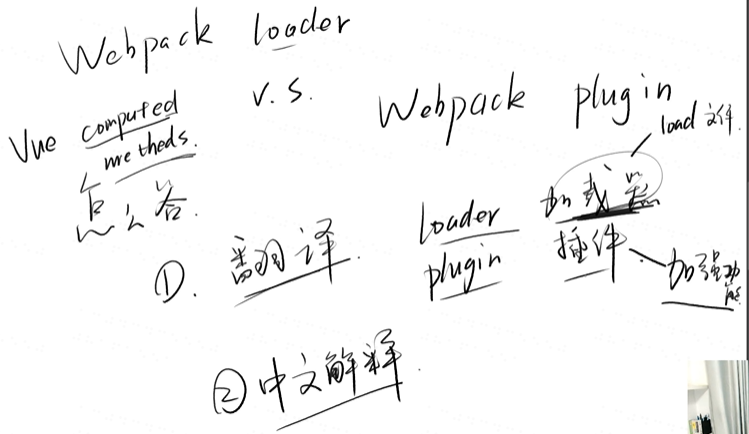 Webpack loader
v.s.
Webpack plugin
Vue computed
methods.
怎么答.
load 文件.
①. 翻译.
loader 加载器
plugin 插件
加强功能
② 中文解释.